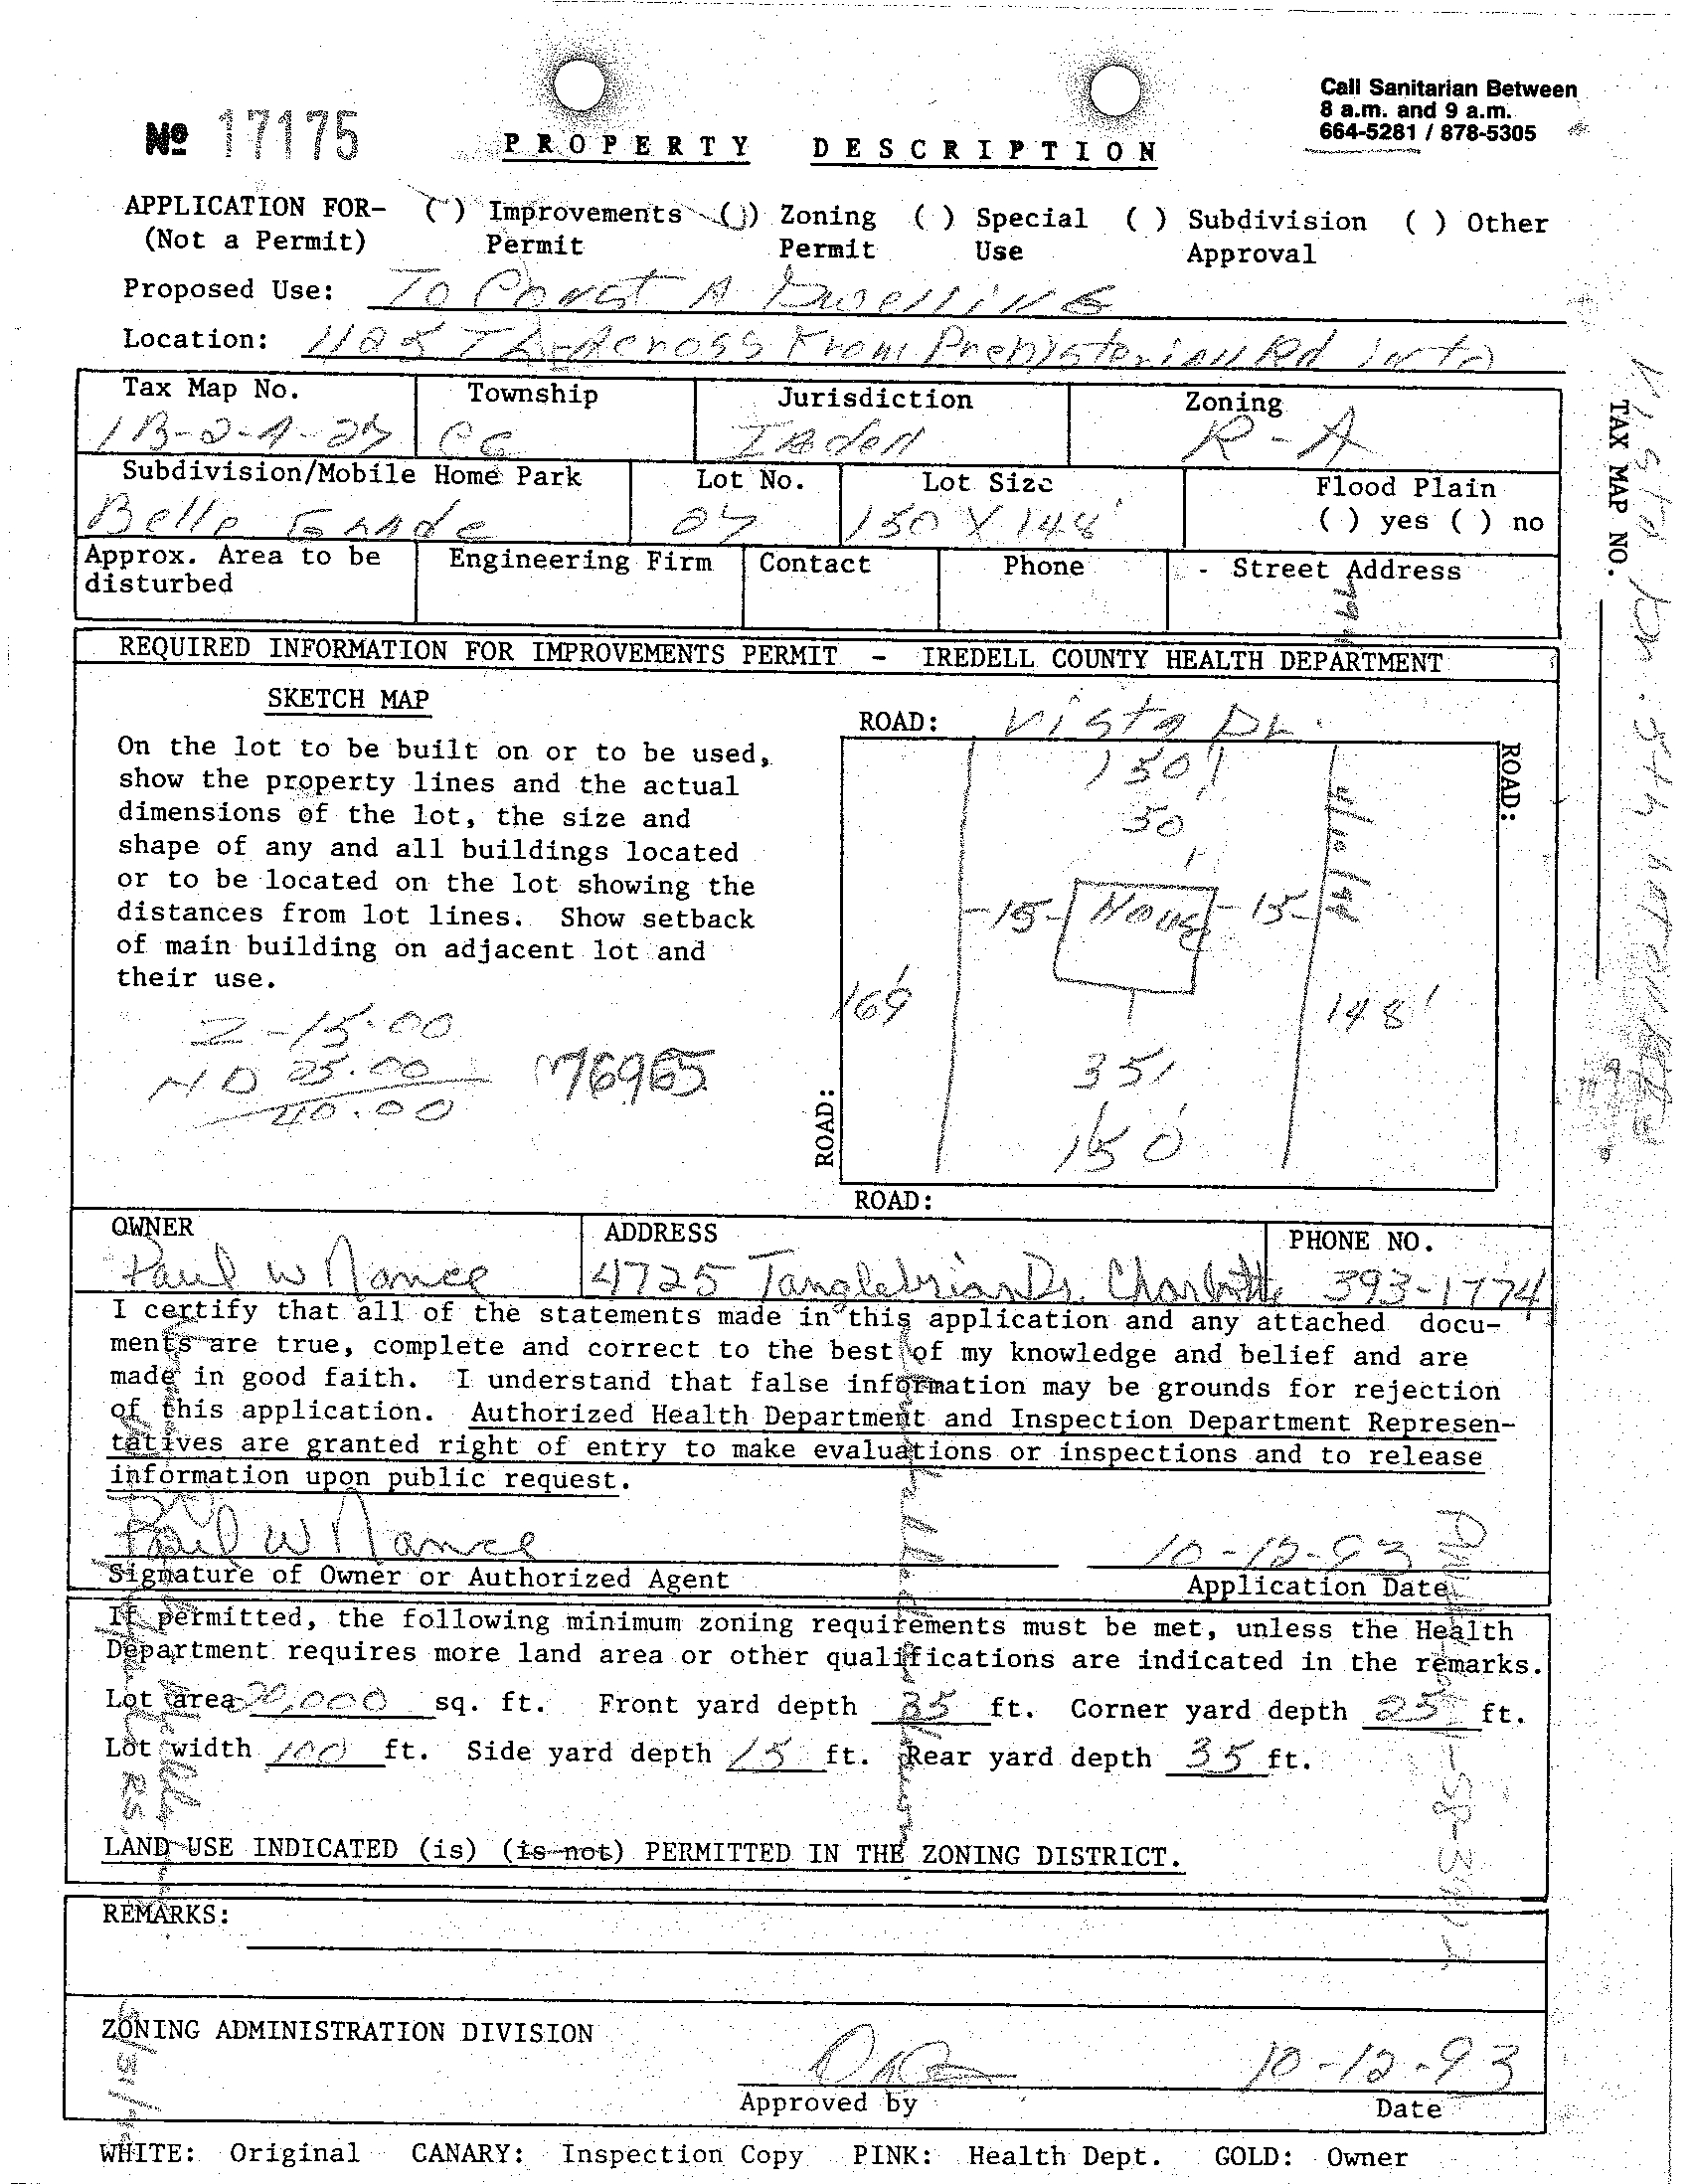 Call Sanitarian Between
8 a.m. and 9 a.m.
664-5281 / 878-5305
№ 17175
PROPERTY DESCRIPTION
APPLICATION FOR- ( ) Improvements ( ) Zoning ( ) Special ( ) Subdivision ( ) Other
(Not a Permit) Permit Permit Use Approval
Proposed Use: To Const A Dwelling
Location: Across From Presbyterian Rd into
Vista Dr.
TAX MAP NO.
Tax Map No. Township Jurisdiction Zoning
CG Iredell R-A
Subdivision/Mobile Home Park Lot No. Lot Size Flood Plain
Belle Grade 150 X 148' ( ) yes ( ) no
Approx. Area to be disturbed Engineering Firm Contact Phone Street Address
REQUIRED INFORMATION FOR IMPROVEMENTS PERMIT - IREDELL COUNTY HEALTH DEPARTMENT
SKETCH MAP
On the lot to be built on or to be used,
show the property lines and the actual
dimensions of the lot, the size and
shape of any and all buildings located
or to be located on the lot showing the
distances from lot lines. Show setback
of main building on adjacent lot and
their use.
Z - 15.00
25.00
40.00
M76965
ROAD: Vista Dr.
150'
50'
-15- House -15-
169' 148'
35'
150'
ROAD:
ROAD:
ROAD:
OWNER ADDRESS PHONE NO.
Paul W Nance 4725 Tanglebriar Dr. Charlotte 393-1774
I certify that all of the statements made in this application and any attached docu-
ments are true, complete and correct to the best of my knowledge and belief and are
made in good faith. I understand that false information may be grounds for rejection
of this application. Authorized Health Department and Inspection Department Represen-
tatives are granted right of entry to make evaluations or inspections and to release
information upon public request.
Paul W Nance 10-12-93
Signature of Owner or Authorized Agent Application Date
If permitted, the following minimum zoning requirements must be met, unless the Health
Department requires more land area or other qualifications are indicated in the remarks.
Lot area 20,000 sq. ft. Front yard depth 35 ft. Corner yard depth 25 ft.
Lot width 100 ft. Side yard depth 15 ft. Rear yard depth 35 ft.
LAND USE INDICATED (is) (is not) PERMITTED IN THE ZONING DISTRICT.
REMARKS:
ZONING ADMINISTRATION DIVISION
10-12-93
Approved by Date
WHITE: Original CANARY: Inspection Copy PINK: Health Dept. GOLD: Owner